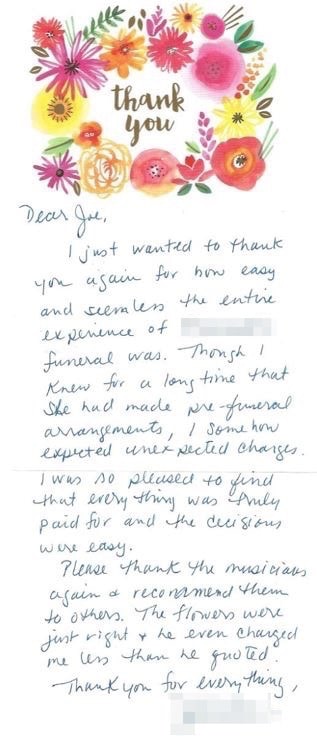 thank
you
Dear Joe,
I just wanted to thank
you again for how easy
and seemless the entire
experience of
funeral was. Though I
knew for a long time that
she had made pre-funeral
arrangements, I somehow
expected unexpected charges.
I was so pleased to find
that everything was truly
paid for and the decisions
were easy.
Please thank the musicians
again & recommend them
to others. The flowers were
just right & he even charged
me less than he quoted.
Thank you for everything,